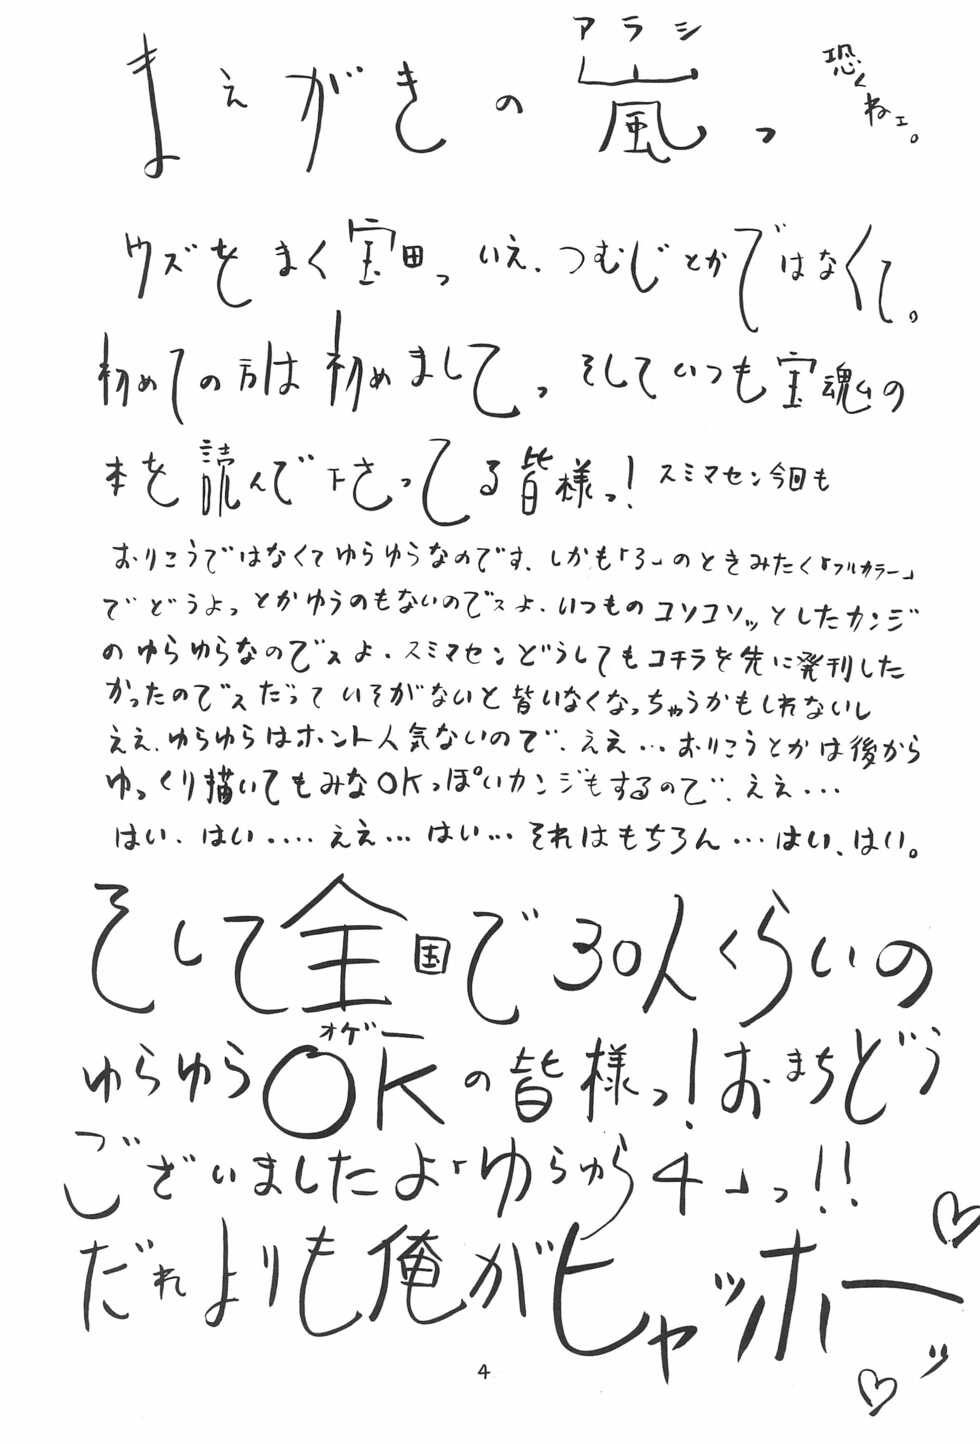 まえがきの嵐っ
アラシ
恐くねェ。
ウズをまく宝田っ いえ、つむじとかではなくて。
初めての方は初めまして っ そしていつも宝魂の
本を読んで下さってる皆様っ! スミマセン今回も
おりこうではなくてゆらゆらなのです、しかも「3」のときみたく「フルカラー」
でどうよっ とかゆうのもないのでスよ、いつものコソコソッとしたカンジ
のゆらゆらなのでスよ、スミマセンどうしてもコチラを先に発刊した
かったのでス だって いそがないと皆いなくなっちゃうかもしれないし
ええ、ゆらゆらはホント人気ないので、ええ… おりこうとかは後から
ゆっくり描いてもみなOKっぽいカンジもするので、ええ・・・
はい、はい・・・・ええ…はい…それはもちろん…はい、はい。
そして全国で30人くらいの
オゲー
ゆらゆらOKの皆様っ!おまちどう
ございましたよ「ゆらゆら4」っ!!
だれよりも俺がヒャッホーッ
4